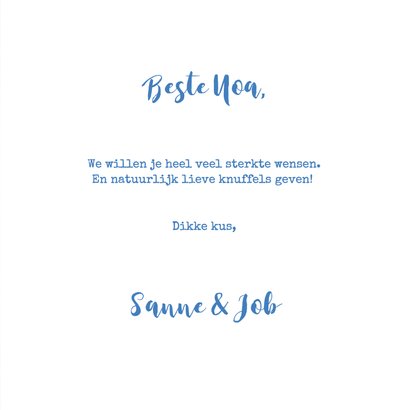 Beste Noa,
We willen je heel veel sterkte wensen.
En natuurlijk lieve knuffels geven!
Dikke kus,
Sanne & Job